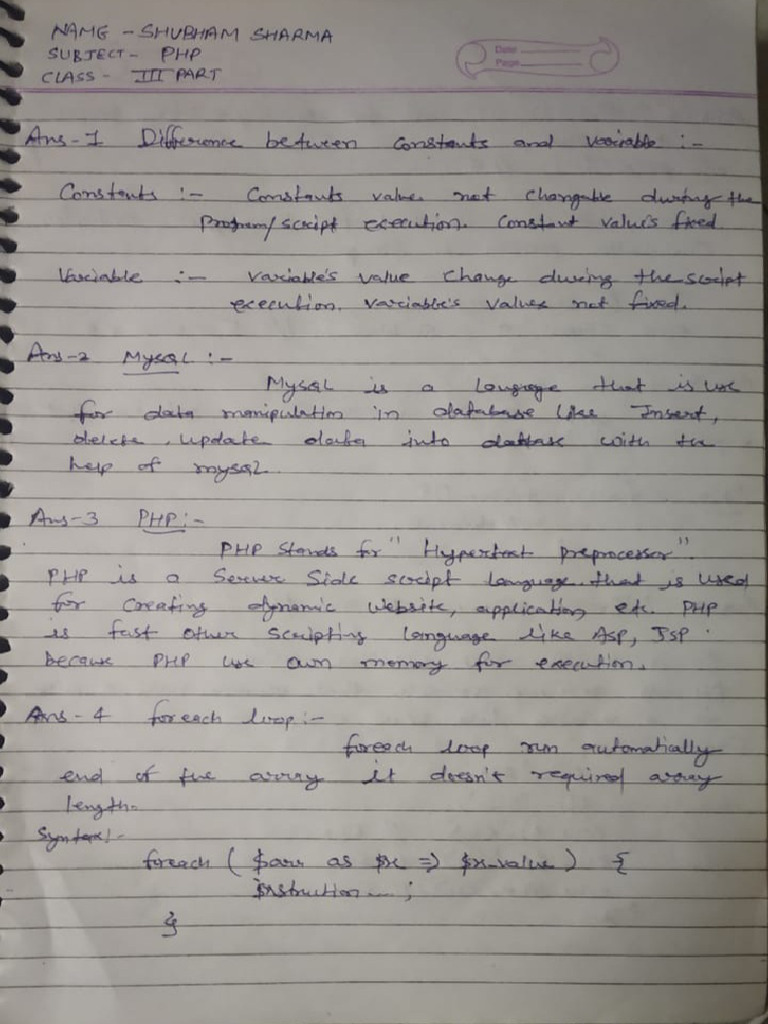 NAME - SHUBHAM SHARMA
SUBJECT - PHP
CLASS - III PART
Date
Page
Ans-1 Difference between constants and variable :-
Constants :- Constants values not changable during the
Program/script execution. Constant value's fixed
Variable :- Variable's value change during the script
execution. variable's values not fixed.
Ans-2 MysqL :-
MysqL is a language that is use
for data manipulation in database like Insert,
delete, update data into database with the
help of mysqL.
Ans-3 PHP :-
PHP stands for "Hypertext preprocessor".
PHP is a Server Side script language that is used
for creating dynamic website, application, etc. PHP
is fast other scripting language like ASP, JSP.
because PHP use own memory for execution.
Ans-4 foreach loop :-
foreach loop run automatically
end of the array it doesn't required array
length.
Syntax :-
foreach ( $arr as $x => $x-value ) {
Instruction ---- ;
}